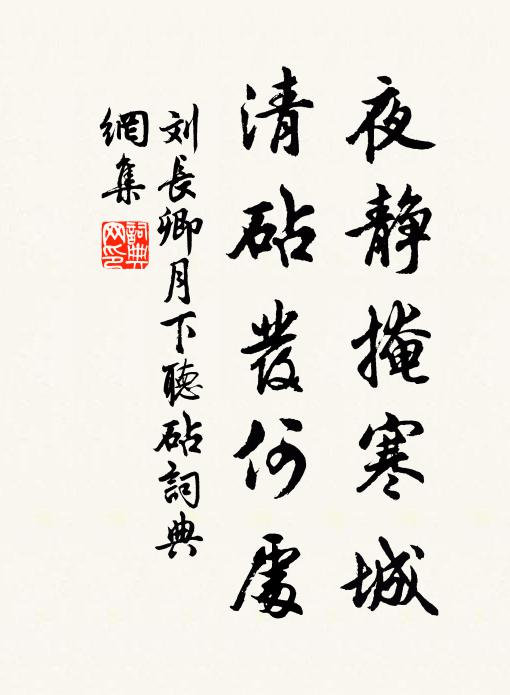 夜静掩寒城
清砧發何處
刘長卿月下聽砧詞典
網集
詞典
网印